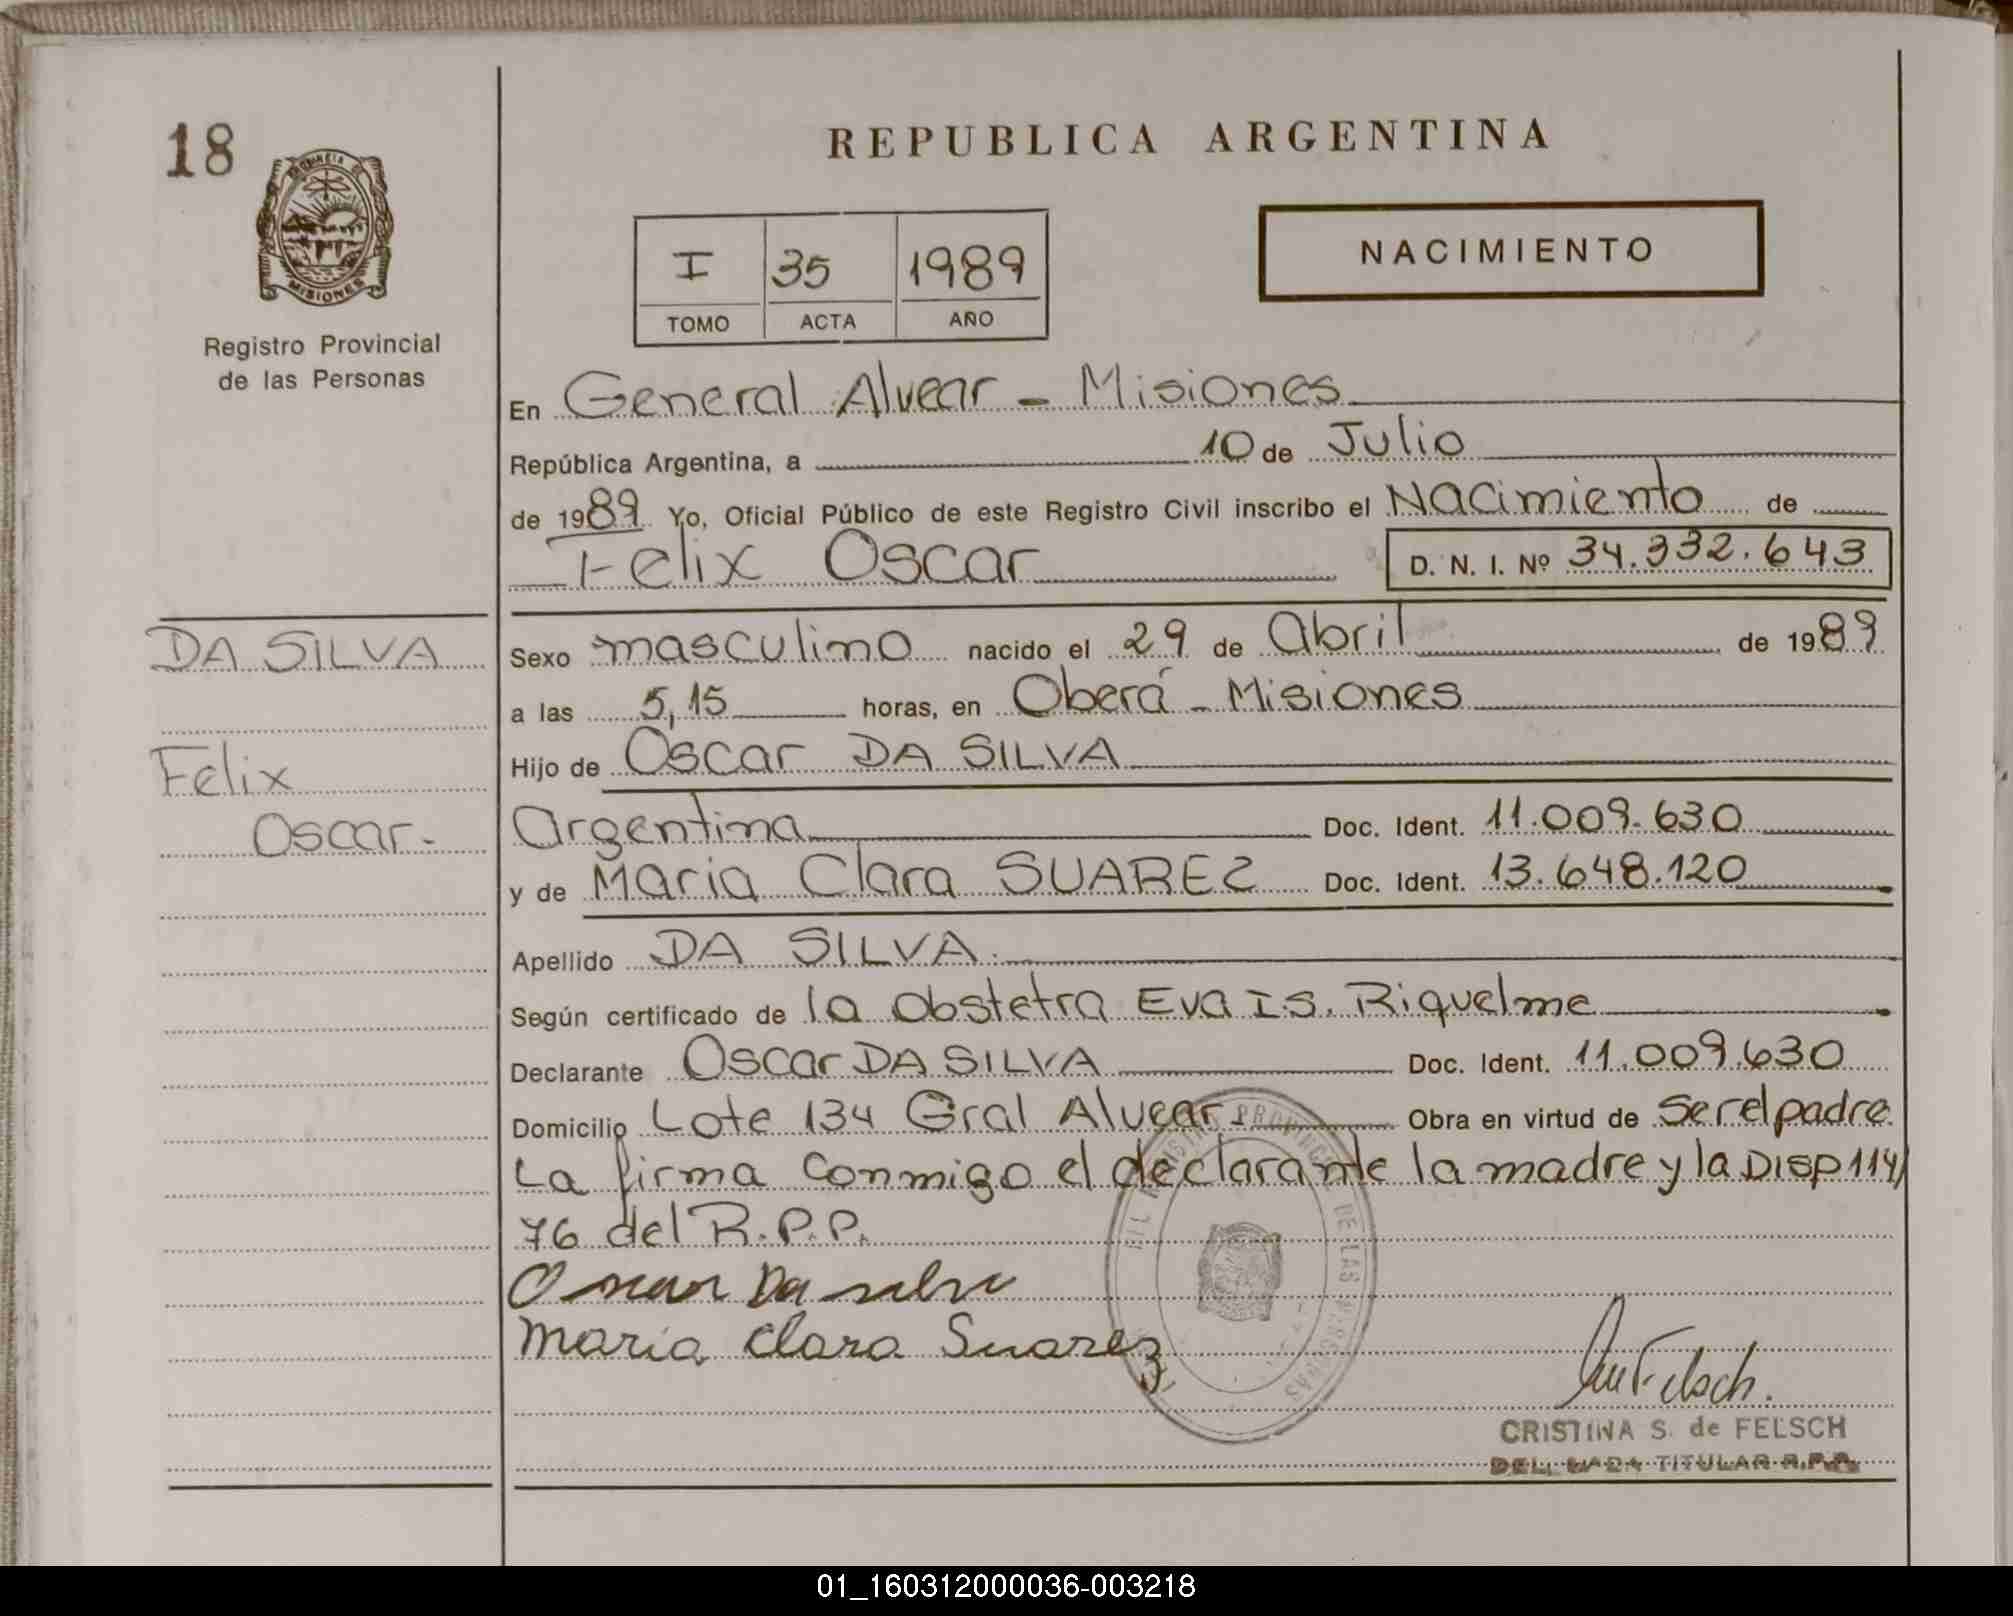 18
PROVINCIA DE
MISIONES
Registro Provincial
de las Personas
REPUBLICA ARGENTINA
I 35 1989
TOMO ACTA AÑO
NACIMIENTO
En General Alvear - Misiones
República Argentina, a 10 de Julio
de 1989 Yo, Oficial Público de este Registro Civil inscribo el Nacimiento de
Felix Oscar D. N. I. Nº 34.332.643
DA SILVA
Felix
Oscar.-
Sexo masculino nacido el 29 de Abril de 1989
a las 5,15 horas, en Oberá - Misiones
Hijo de Oscar DA SILVA
Argentina Doc. Ident. 11.009.630
y de Maria Clara SUAREZ Doc. Ident. 13.648.120
Apellido DA SILVA.
Según certificado de la Obstetra Eva I.S. Riquelme
Declarante Oscar DA SILVA Doc. Ident. 11.009.630
Domicilio Lote 134 Gral Alvear Obra en virtud de Ser el padre
La firma conmigo el declarante la madre y la Disp 114/
76 del R.P.P.
Oscar Da silva
Maria Clara Suarez
PROVINCIAL DE LAS PERSONAS
Felsch.
CRISTINA S. de FELSCH
DELEGADA TITULAR R.P.P.
01_160312000036-003218